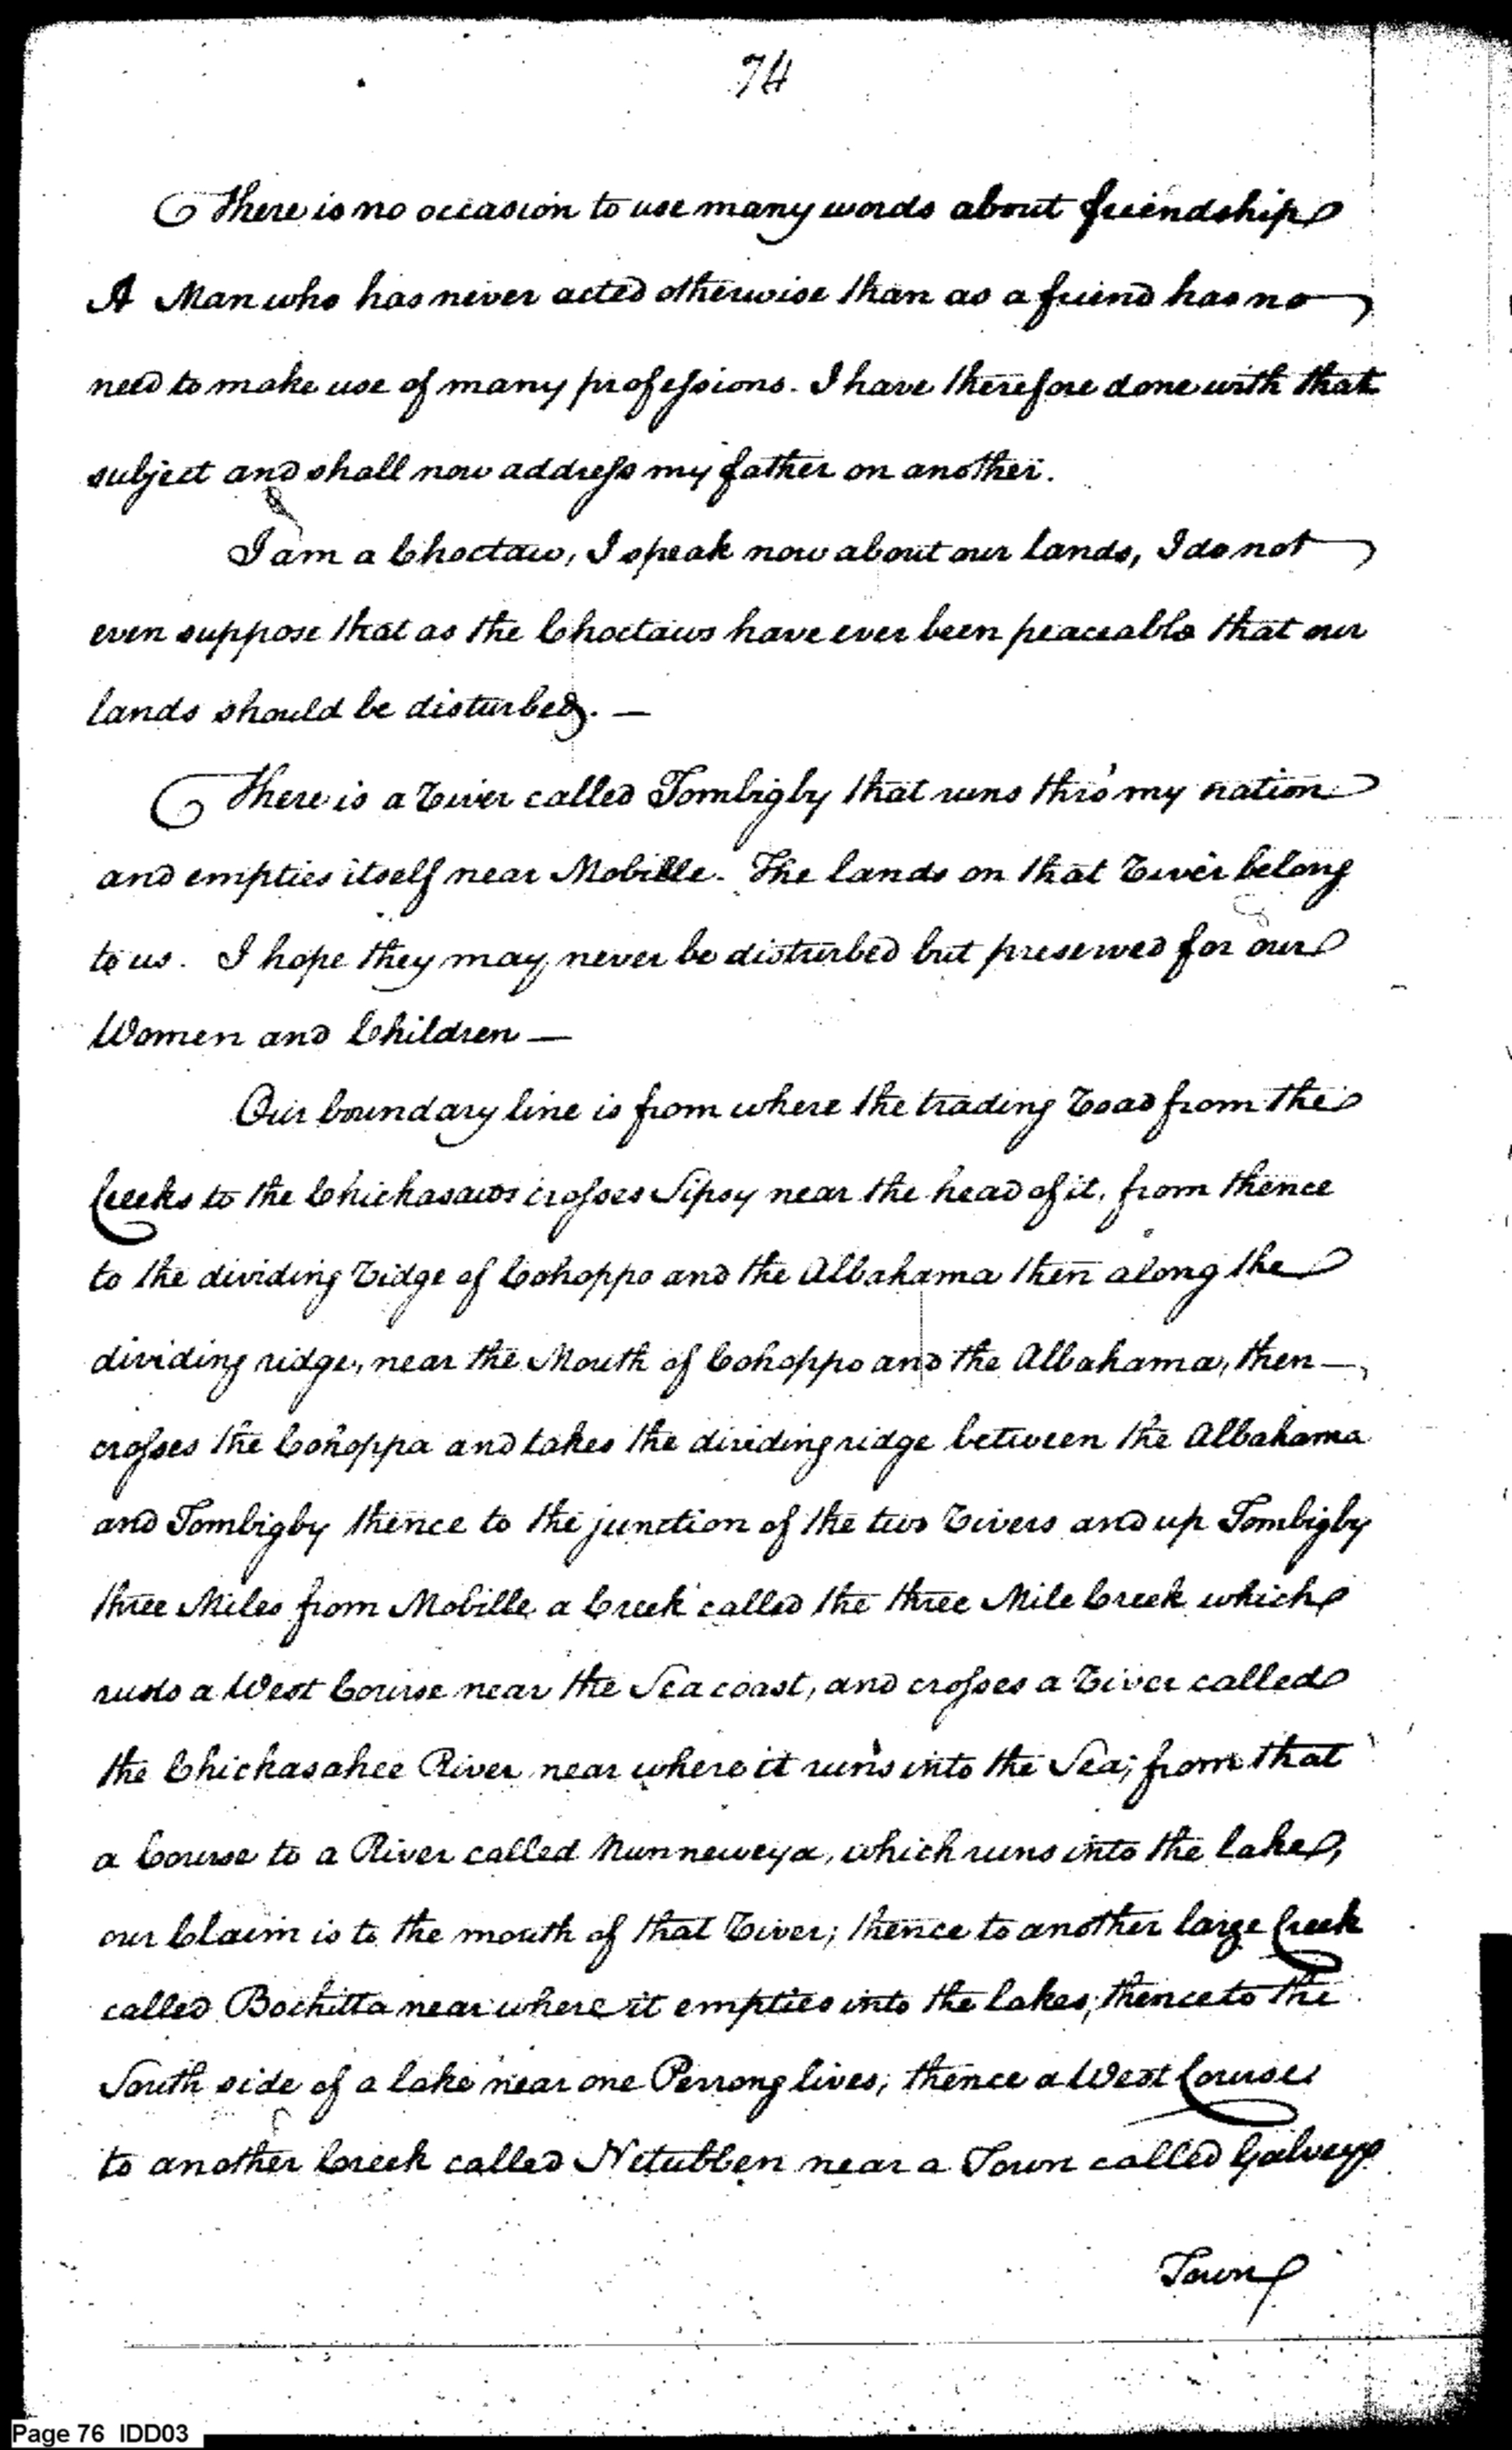 74
There is no occasion to use many words about friendship
A Man who has never acted otherwise than as a friend has no
need to make use of many professions. I have therefore done with that
subject and shall now address my father on another.
I am a Choctaw, I speak now about our lands, I do not
even suppose that as the Choctaws have ever been peaceable that our
lands should be disturbed. —
There is a River called Tombigby that runs thro' my nation
and empties itself near Mobille. The lands on that River belong
to us. I hope they may never be disturbed but preserved for our
Women and Children —
Our boundary line is from where the trading Road from the
Creeks to the Chickasaws crosses Sipsy near the head of it, from thence
to the dividing Ridge of Cohoppo and the Albahama then along the
dividing ridge, near the Mouth of Cohoppo and the Albahama, then —
crosses the Cohoppa and takes the dividing ridge between the Albahama
and Tombigby thence to the junction of the two Rivers and up Tombigby
three Miles from Mobille a Creek called the three Mile Creek which
runs a West Course near the Sea coast, and crosses a River called
the Chickasahee River near where it runs into the Sea; from that
a Course to a River called Nunneweya, which runs into the lake,
our Claim is to the mouth of that River; thence to another large Creek
called Bochitta near where it empties into the lakes; thence to the
South side of a lake near one Perrong lives; thence a West Course
to another Creek called Netubben near a Town called Galveys
Town
Page 76 IDD03